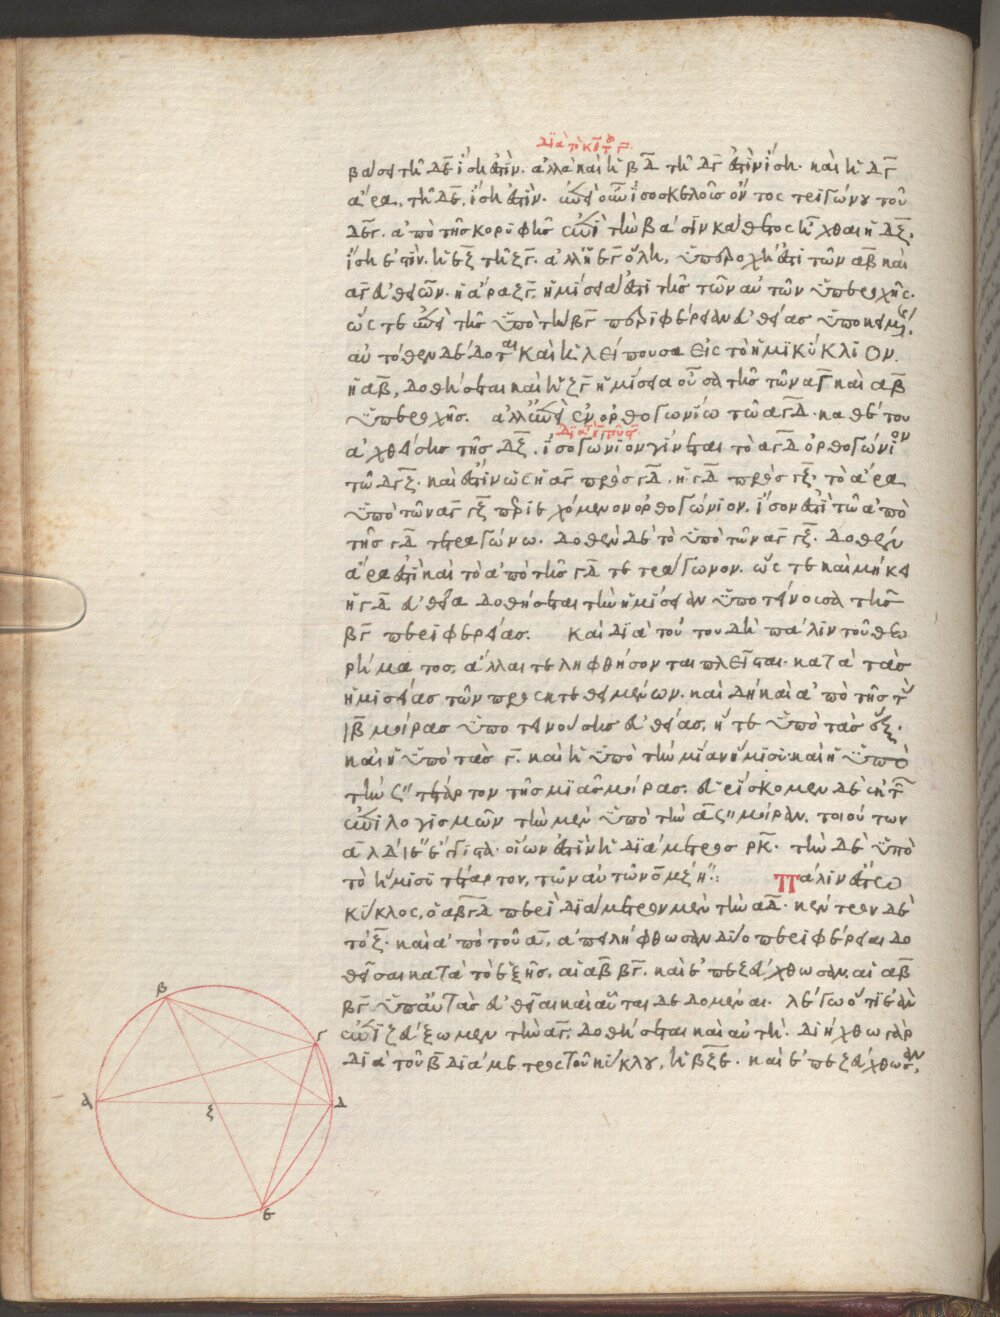 διὰ τὸ κ̅ϛ̅ τοῦ γ̅.
βάσει τῆ δε̅ ἴση ἐστίν. ἀλλὰ καὶ ἡ β̅δ̅ τῆ δγ̅ ἐστὶν ἴση. καὶ ἡ δγ̅
ἄρα, τῆ δε̅, ἴση ἐστίν. ἐπεὶ οὖν ἰσοσκελοῦς ὄντος τριγώνου τοῦ
δεγ̅. ἀπὸ τῆς κορυφῆς ἐπὶ τὴν βάσιν κάθετος ἦχθαι ἡ δξ̅.
ἴση ἐστὶν. ἡ εξ̅ τῆ ξγ̅. ἀλλ' ἡ εγ̅ ὅλη, ὑπεροχή ἐστι τῶν αβ̅ καὶ
αγ̅ εὐθειῶν. ἡ ἄρα ξγ̅, ἡμίσειά ἐστι τῆς τῶν αὐτῶν ὑπεροχῆς.
ὥστε ἐπεὶ τῆς ὑπὸ τὴν βγ̅ περιφέρειαν εὐθείας ὑποκειμένης,
αὐτόθεν δέδοται καὶ ἡ λείπουσα εἰς τὸ ἡμικύκλιον.
ἡ αβ̅, δοθήσεται καὶ ἡ ξγ̅ ἡμίσεια οὖσα τῆς τῶν αγ̅ καὶ αβ̅
ὑπεροχῆς. ἀλλ' ἐπεὶ ἐν ὀρθογωνίω τῶ αγδ̅. καθέτου
ἀχθείσης τῆς δξ̅. ἰσογώνιον γίνεται τὸ αγδ̅ ὀρθογώνιον
τῶ δγξ̅. καὶ ἐστὶν ὡς ἡ αγ̅ πρὸς γδ̅. ἡ γδ̅ πρὸς γξ̅. τὸ ἄρα
ὑπὸ τῶν αγ̅ γξ̅ περιεχόμενον ὀρθογώνιον. ἴσον ἐστὶ τῶ ἀπὸ
τῆς γδ̅ τετραγώνω. δοθὲν δὲ τὸ ὑπὸ τῶν αγ̅ γξ̅. δοθὲν
ἄρα ἐστὶ καὶ τὸ ἀπὸ τῆς γδ̅ τετράγωνον. ὥστε καὶ μήκει
ἡ γδ̅ εὐθεῖα δοθήσεται τὴν ἡμίσειαν ὑποτείνουσα τῆς
βγ̅ περιφερείας. καὶ διὰ τούτου δὴ πάλιν τοῦ θεω
ρήματος, ἄλλαι τε ληφθήσονται πλεῖσται. κατὰ τὰς
ἡμισείας τῶν προεκτεθειμένων. καὶ δὴ καὶ ἀπὸ τῆς τὰς
ιβ̅ μοίρας ὑποτεινούσης εὐθείας, ἥ τε ὑπὸ τὰς ϛ̅ξ.
καὶ ἡ ὑπὸ τὰς γ̅. καὶ ἡ ὑπὸ τὴν μίαν ἥμισυ. καὶ ἡ ὑπὸ
τὴν ϛ'' τέταρτον τῆς μιᾶς μοίρας. εὑρίσκομεν δὲ ἐκ τῶν
ἐπιλογισμῶν τὴν μὲν ὑπὸ τὴν α̅ϛ'' μοῖραν. τοιούτων
α̅ λδ ιε ἔγγιστα. οἵων ἐστὶν ἡ διάμετρος ρκ̅. τὴν δὲ ὑπὸ
τὸ ἥμισυ τέταρτον, τῶν αὐτῶν ο̅ μζ η''.: Πάλιν ἔστω
κύκλος, ὁ αβγδ̅ περὶ διάμετρον μὲν τὴν αδ̅. κέντρον δὲ
τὸ ξ̅. καὶ ἀπὸ τοῦ α̅, ἀπειλήφθωσαν δύο περιφέρειαι δο
θεῖσαι κατὰ τὸ ἑξῆς, αἱ αβ̅ βγ̅. καὶ ἐπεζεύχθωσαν, αἱ αβ̅
βγ̅ ὑπ' αὐτὰς εὐθεῖαι καὶ αὗται δεδομέναι. λέγω ὅτι ἐὰν
ἐπιζεύξωμεν τὴν αγ̅, δοθήσεται καὶ αὐτή. διήχθω γὰρ
διὰ τοῦ β̅ διάμετρος τοῦ κύκλου, ἡ βξε̅. καὶ ἐπεζεύχθωσαν,
β
γ
α
δ
ξ
ε